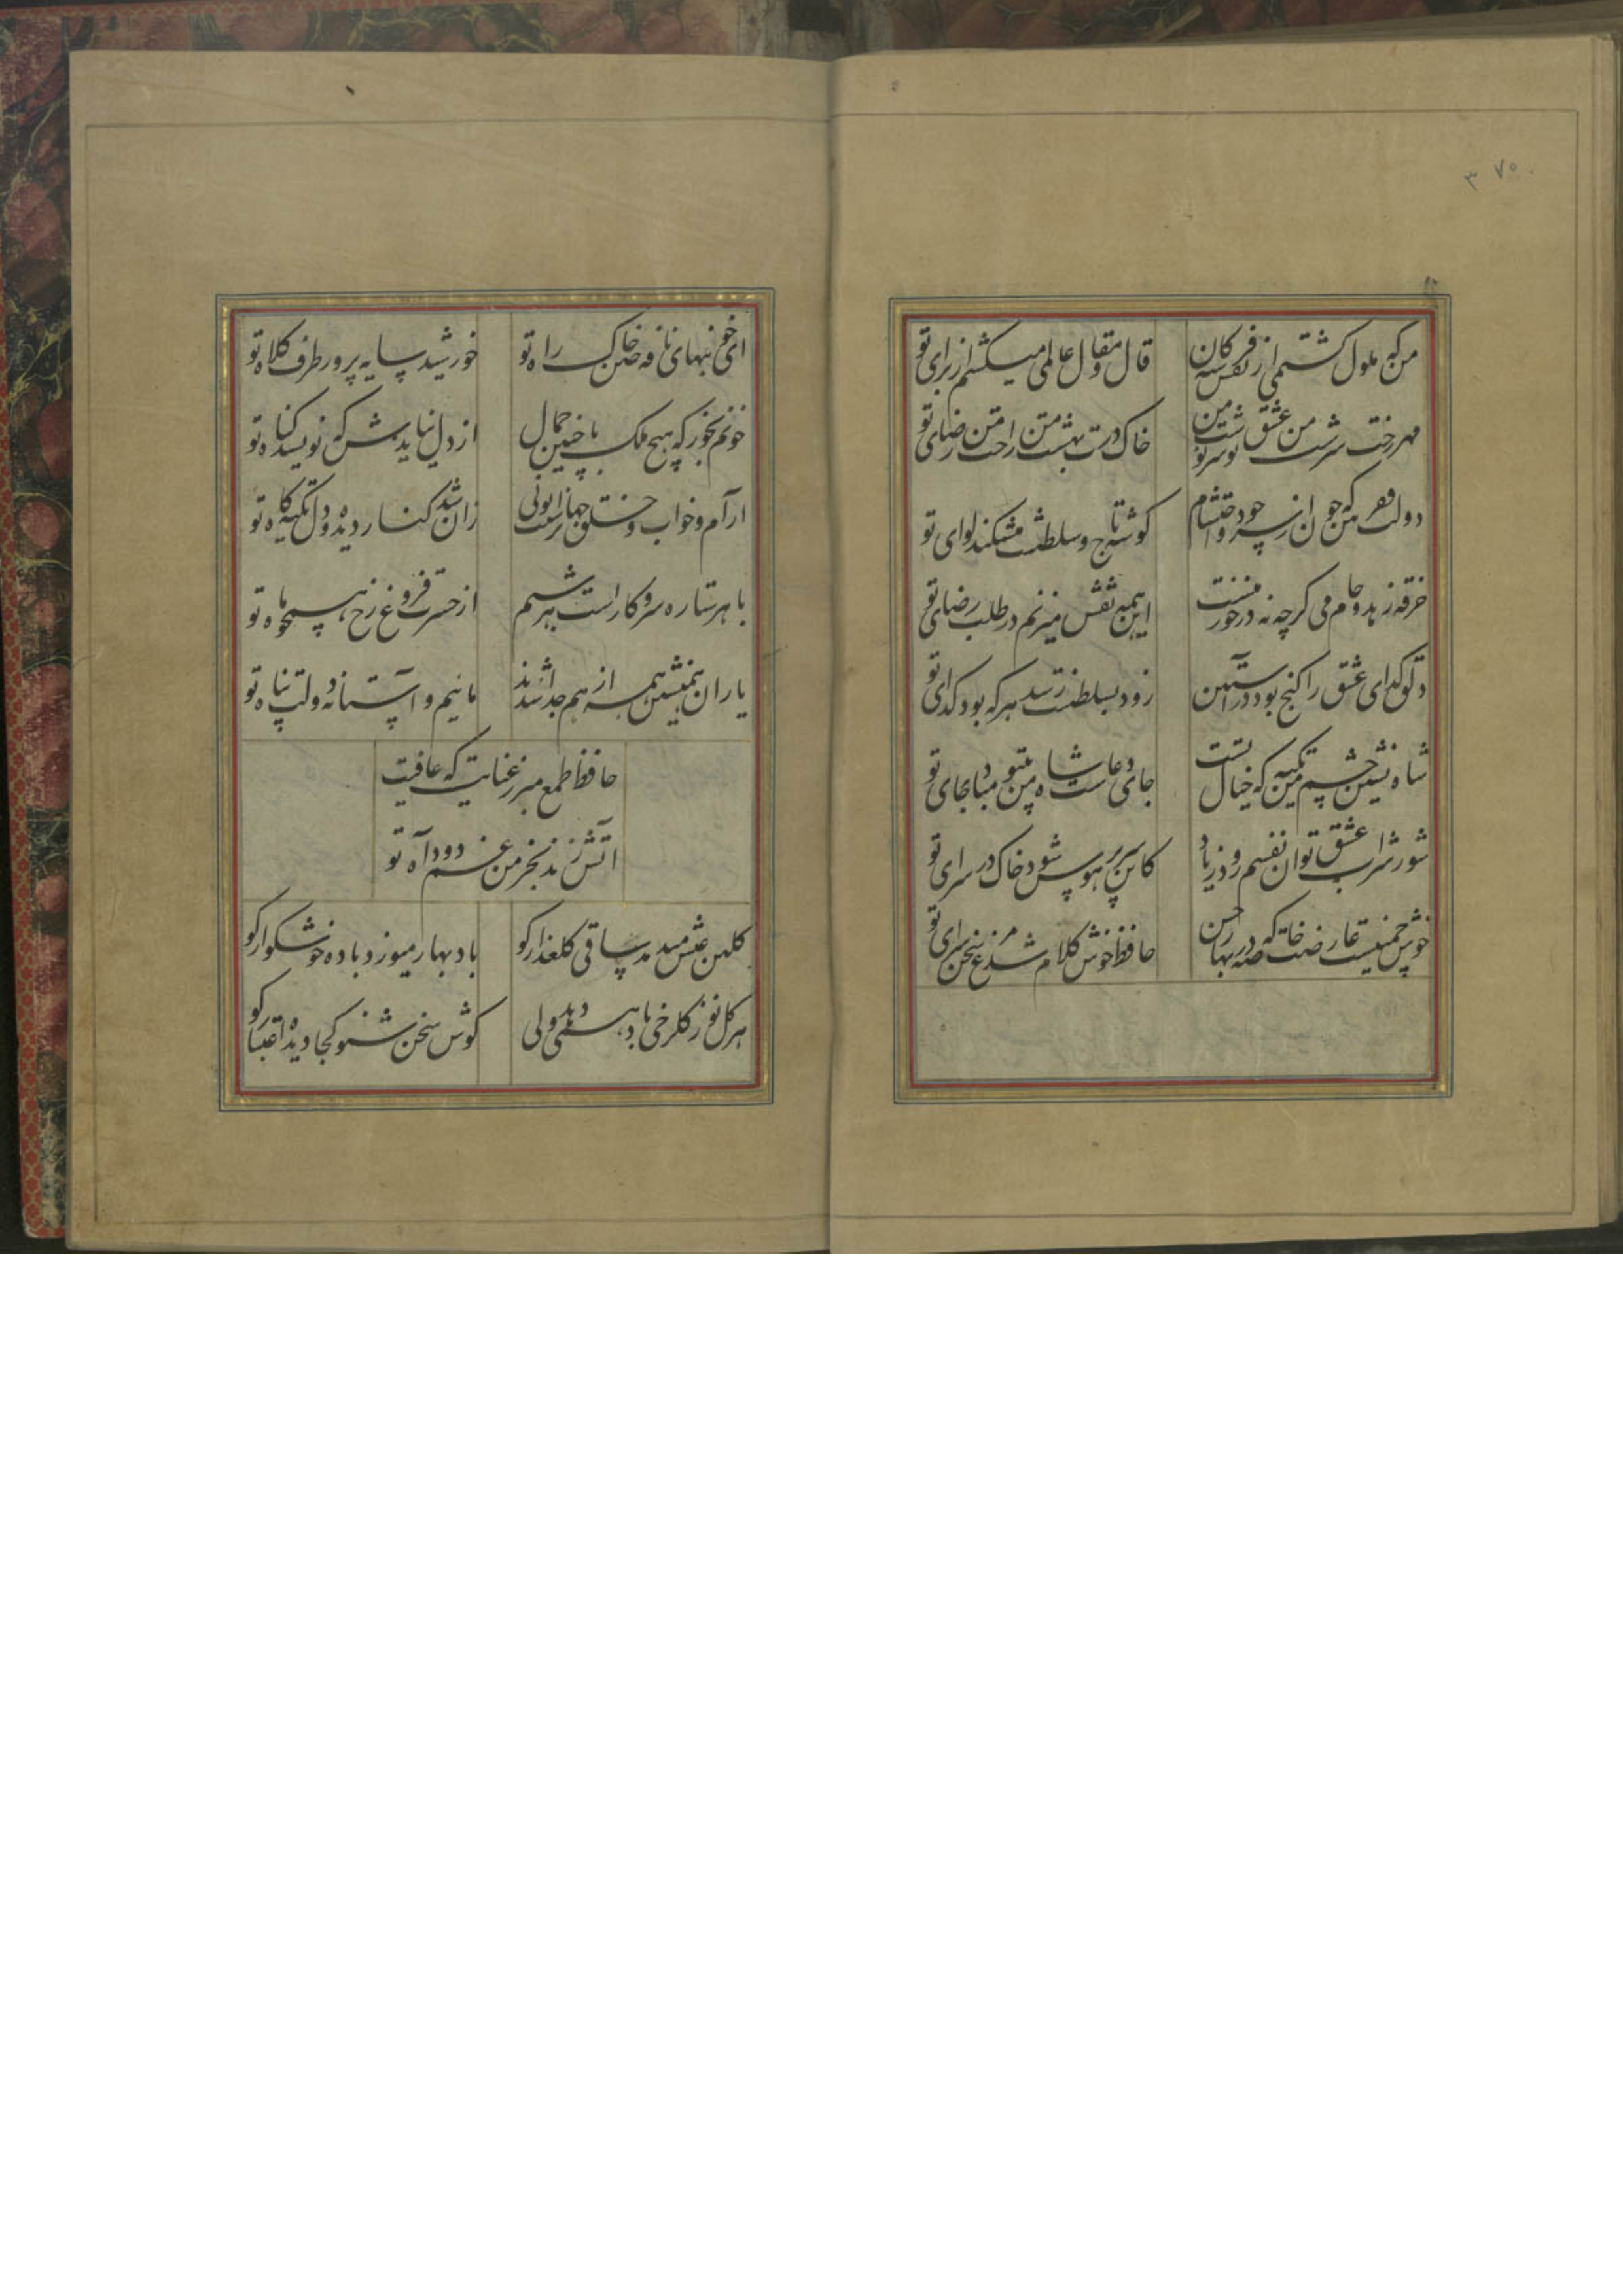 ۳۷۵
من که ملول گشتمی از نفس فرشتگان
قال و مقال عالمی میکشم از برای تو
مهر رخت سرشت من عشق تو سرنوشت من
خاک درت بهشت من راحت من رضای تو
خرقه زهد و جام می گرچه نه درخور منست
این همه نقش میزنم در طلب رضای تو
دلق گدای عشق را گنج بود در آستین
زود بسلطنت رسد هر که بود گدای تو
شاه نشین چشم من تکیه که خیال تست
جای دعاست شاه من بیتو مباد جای تو
شور شراب عشق تو آن نفسم رود ز یاد
کاین سر پر هوس شود خاک در سرای تو
خوش چمنیست عارضت خاصه که در بهار حسن
حافظ خوش کلام شد مرغ سخن سرای تو
ای خونبهای نافه چین خاک راه تو
خورشید سایه پرور طرف کلاه تو
خونم بخور که هیچ ملک با چنین جمال
از دل نیایدش که نویسد گناه تو
آرام و خواب خلق جهان را سبب توئی
زان شد کنار دیده و دل تکیه گاه تو
با هر ستاره سر و کار است هر شبم
از حسرت فروغ رخ همچو ماه تو
یاران همنشین همه از هم جدا شدند
مائیم و آستانه دولت پناه تو
حافظ طمع مبر ز عنایت که عاقبت
آتش زند بخرمن غم دود آه تو
گلبن عیش میدمد ساقی گلعذار کو
باد بهار میوزد باده خوشگوار کو
هر گل نو ز گلرخی یاد همی دهد ولی
گوش سخن شنو کجا دیده اعتبار کو